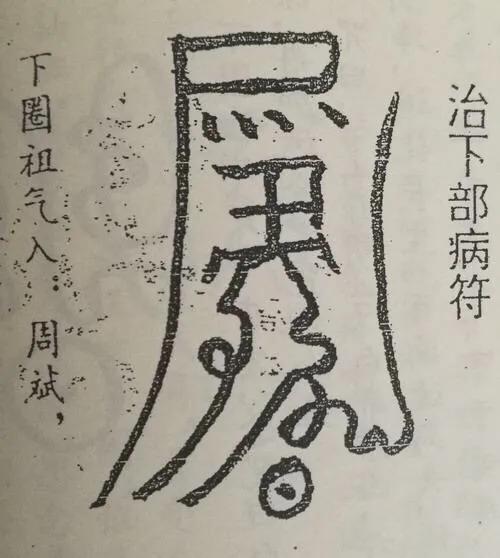 治下部病符
下圈祖气入：周斌，